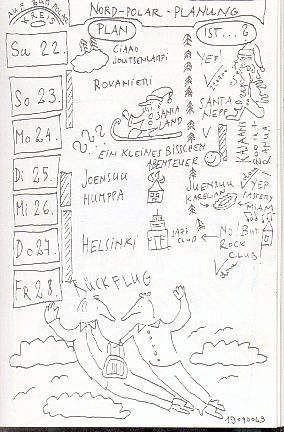 AUF ZUM POLAR
KREIS
NORD-POLAR-PLANUNG
PLAN
IST...?
SA 22.
CIAO
JOUTSENLAMPI
YEP!
SO 23.
ROVANIEMI
SANTA
LAND
SANTA
NEPP
MO 24.
EIN KLEINES BISSCHEN
ABENTEUER
KAJAANI
DI 25.
JOENSUU
HUMPPA
JUENSUU
KARELIAN
YEP
MIAM
MI 26.
DO 27.
HELSINKI
JAZZ
CLUB
NO! BUT
ROCK
CLUB!
FR 28.
RÜCKFLUG